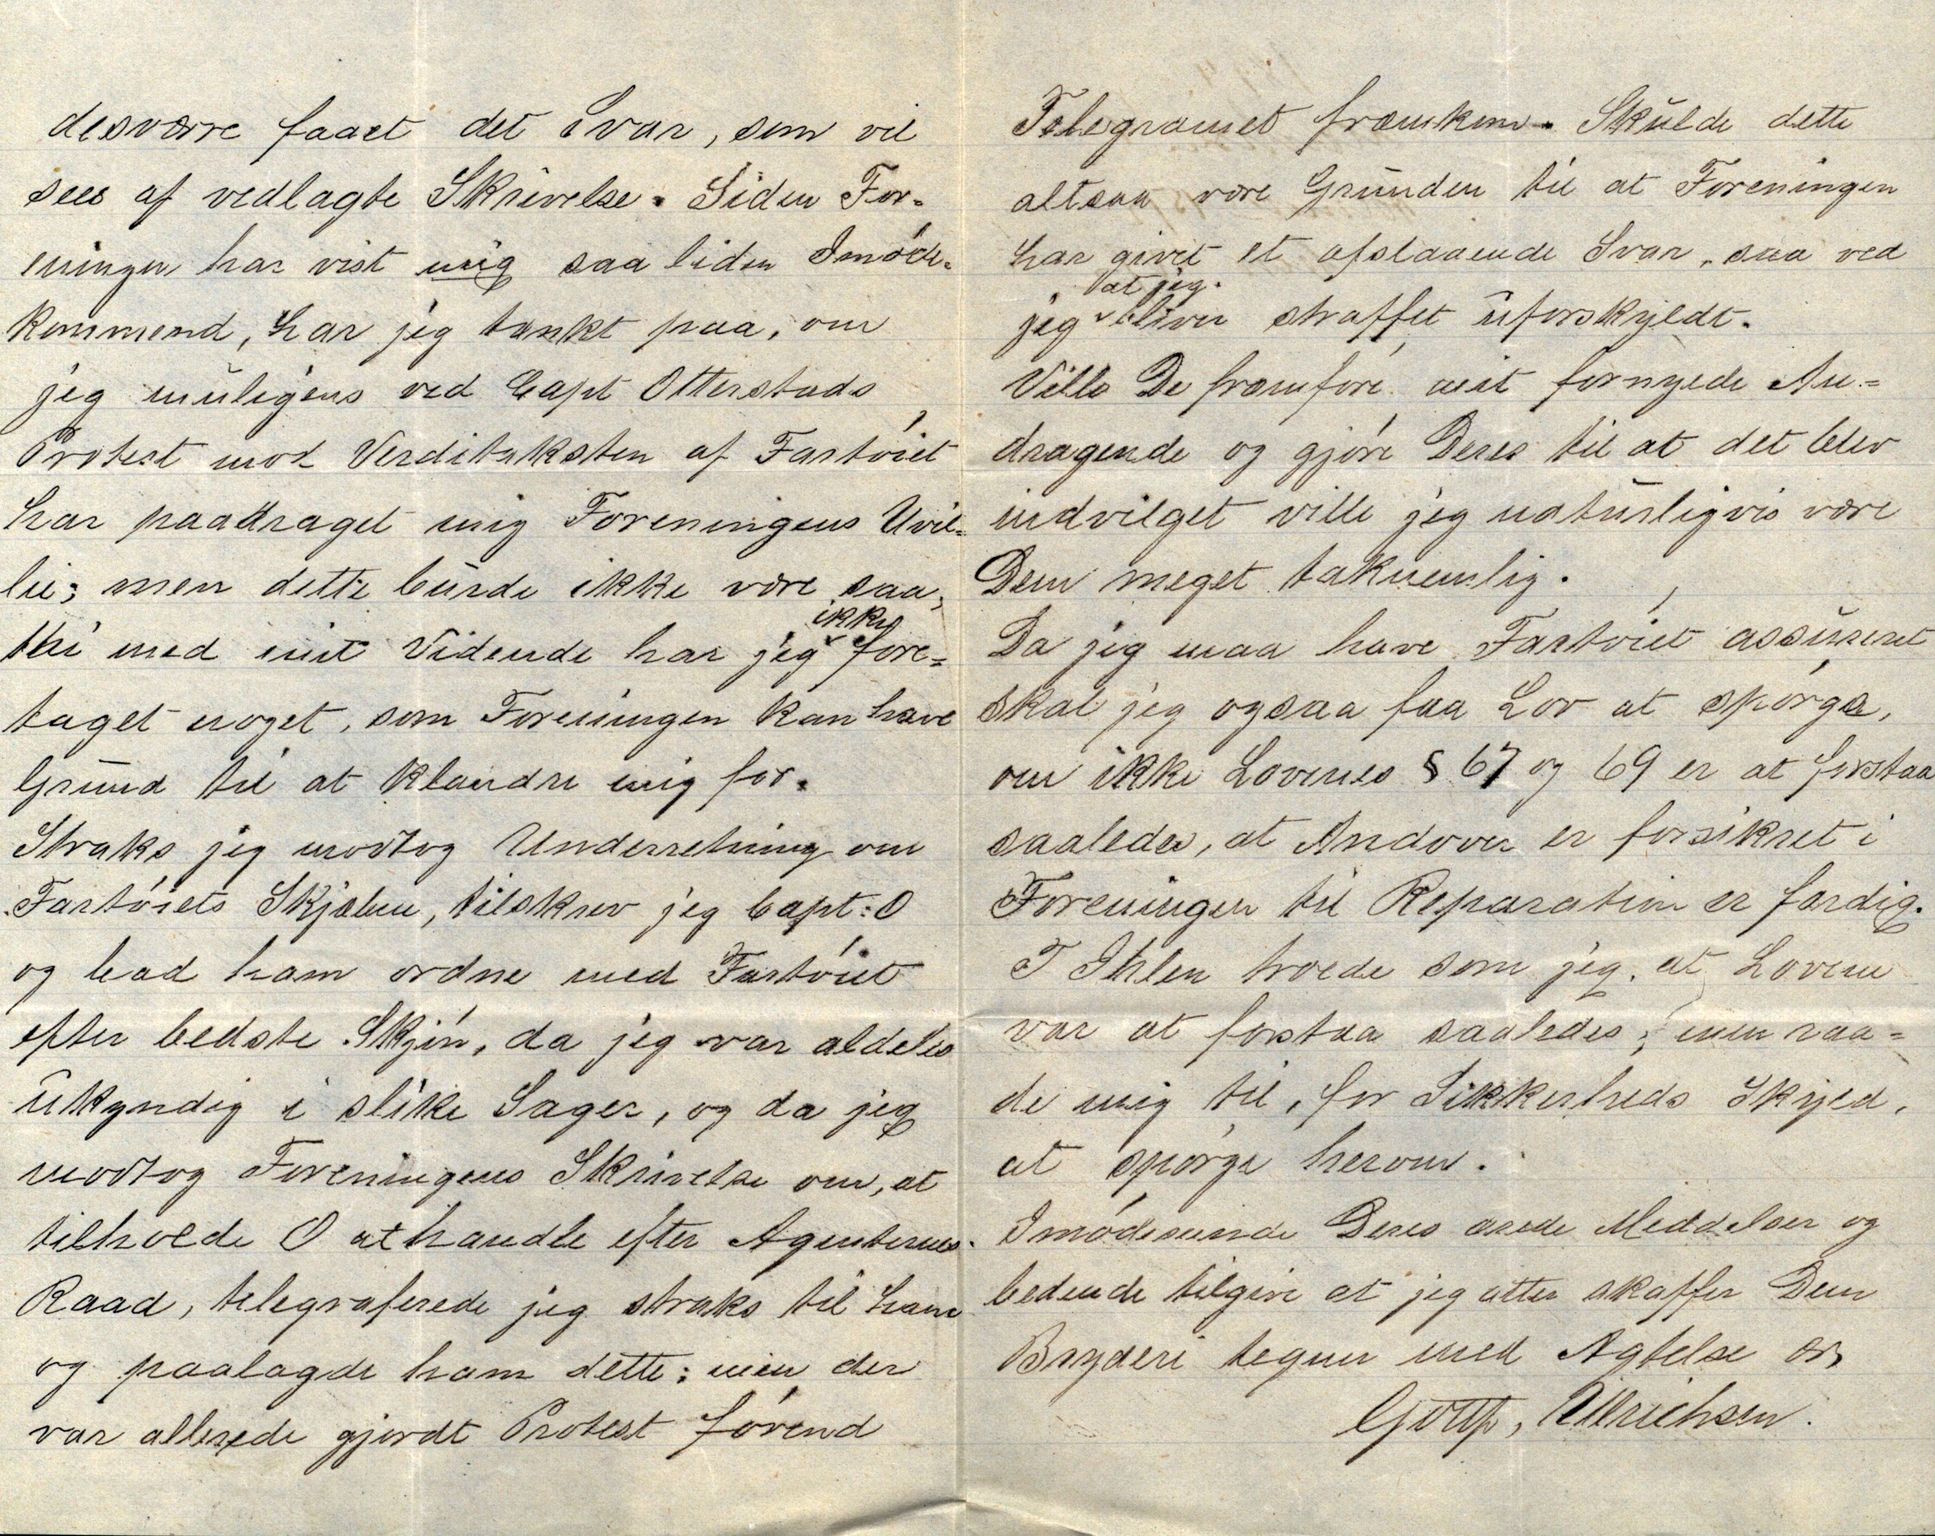 desværre faaet det Svar, som vil
sees af vedlagte Skrivelse. Siden For-
eningen har vist mig saa liden Imøde-
kommend, har jeg tænkt paa, om
jeg muligens ved Capt Otterstads
Protest mod Verditaksten af Fartøiet
har paadraget mig Foreningens Uvil-
lie; men dette burde ikke være saa;
thi med mit Vidende har jeg ikke fore-
taget noget, som Foreningen kan have
Grund til at klandre mig for.
Straks jeg modtog Underretning om
Fartøiets Skjæbne, tilskrev jeg Capt: O
og bad ham ordne med Fartøiet
efter bedste Skjøn, da jeg var aldeles
ukyndig i slike Sager, og da jeg
modtog Foreningens Skrivelse om, at
tilholde O at handle efter Agenternes
Raad, telegraferede jeg straks til ham
og paalagde ham dette; men der
var allerede gjordt Protest førend
Telegramet fræmkom. Skulde dette
altsaa være Grunden til at Foreningen
har givet et afslaaende Svar, saa ved
jeg at jeg bliver straffet uforskyldt.
Ville De fræmføre mit fornyede An-
dragende og gjøre Deres til at det blev
indvilget ville jeg naturligvis være
Dem meget taknemlig.
Da jeg maa have Fartøiet assureret
skal jeg ogsaa faa Lov at spørge,
om ikke Lovenes § 67 og 69 er at forstaa
saaledes, at Andover er forsikret i
Foreningen til Reparation er færdig.
T Ihlen troede som jeg, at Lovene
var at forstaa saaledes; men raa-
de mig til, for Sikkerheds Skyld,
at spørge herom.
Imødeseende Deres ærede Meddelser og
bedende tilgive at jeg atter skaffer Dem
Bryderi tegner med Agtelse
Gottf, Ullrichsen.